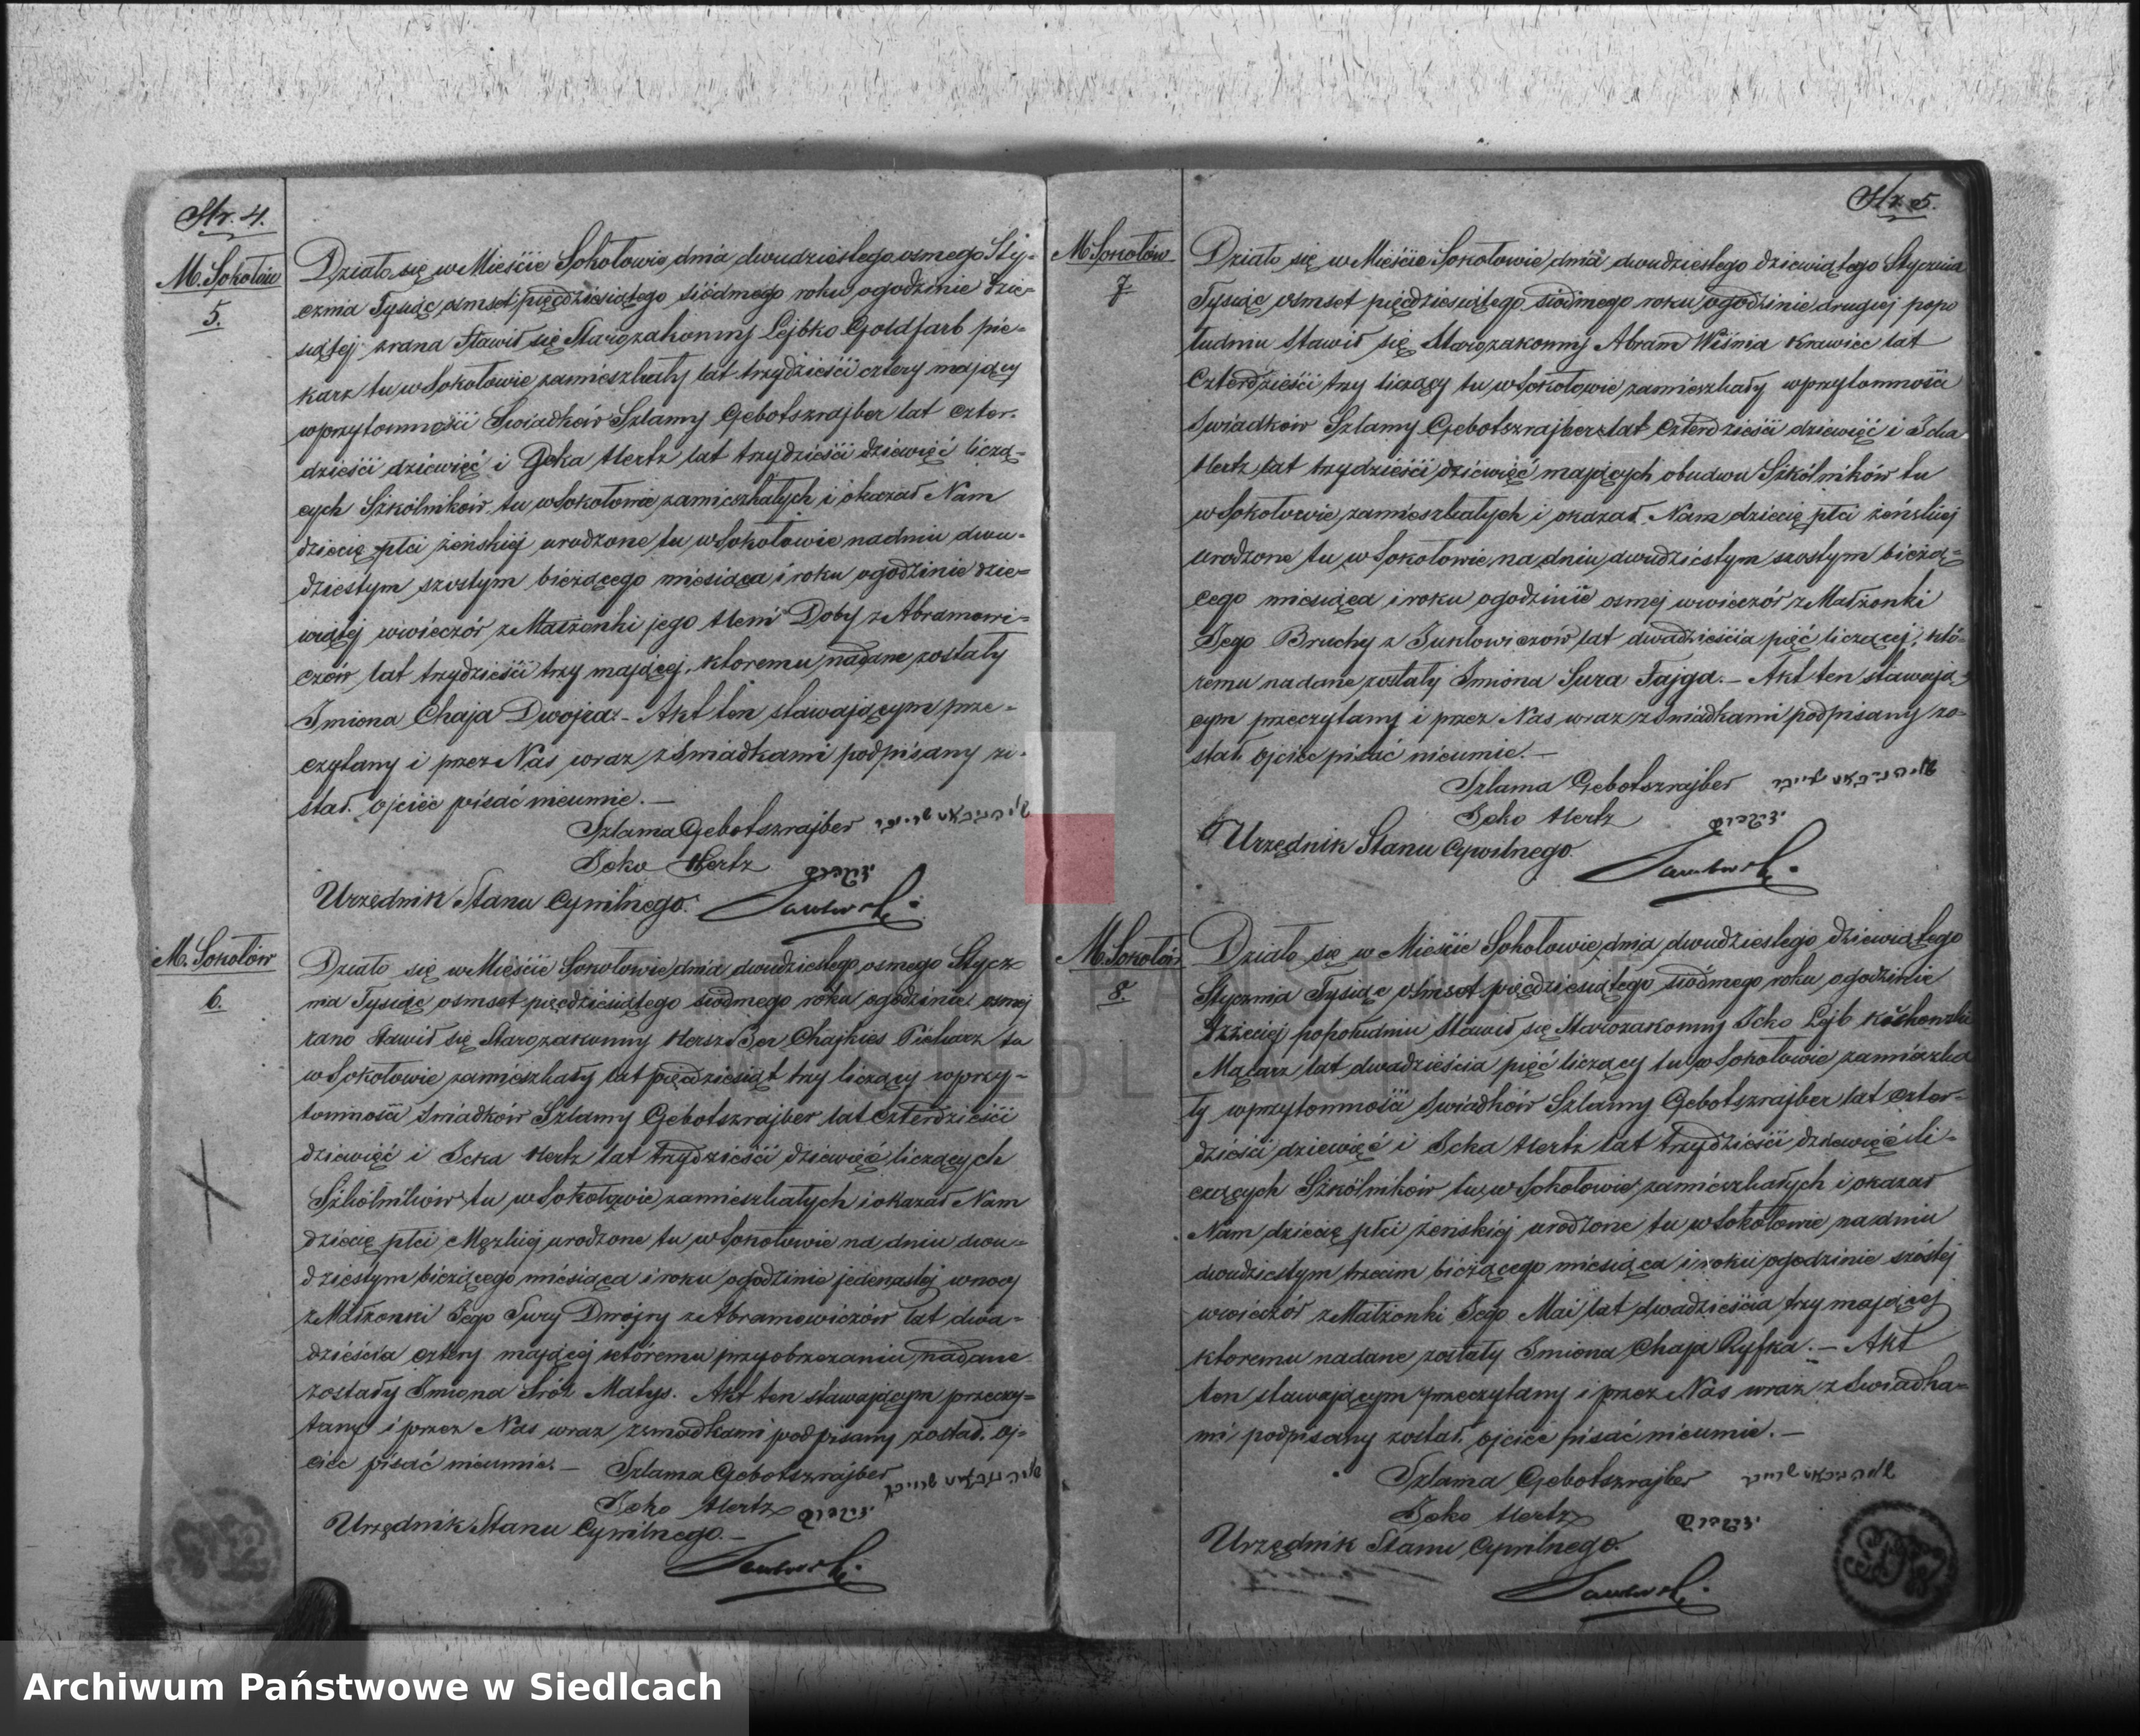 Str. 4.
M. Sokołów
5.
Działo się w Mieście Sokołowie dnia dwudziestego osmego Sty-
cznia Tysiąc osmset pięcdziesiątego siódmego roku ogodzinie dzie-
siątej zrana Stawił się Starozakonny Lejbko Goldfarb pie-
karz tu w Sokołowie zamieszkały lat trzydzieści cztery mający
w przytomności Swiadków Szlamy Gebotszrajber lat czter-
dzieści dziewięć i Icka Hertz lat trzydzieści dziewięć liczą-
cych Szkólników tu w Sokołowie zamieszkałych i okazał Nam
dziecię płci żeńskiej urodzone tu w Sokołowie nadniu dwu-
dziestym szostym bieżącego miesiąca i roku ogodzinie dzie-
wiątej wwieczór z Małżonki jego Doby z Abramowi-
czów lat trzydzieści trzy mającej, ktoremu nadane zostały
Imiona Chaja Dwojra.- Akt ten stawającym prze-
czytany i przez Nas wraz z Swiadkami podpisany zo-
stał. ojciec pisać nieumie.—
Szlama Gebotszrajber
Icko Hertz
Urzędnik Stanu Cywilnego.
M. Sokołów
6.
Działo się w Mieście Sokołowie dnia dwudziestego osmego Stycz
nia Tysiąc osmset pięcdziesiątego siodmego roku ogodzinie osmej
rano Stawił się Starozakonny Hersz Ber Chajkies Piekarz tu
w Sokołowie zamieszkały lat pięcdziesiąt trzy liczący w przy-
tomności Swiadków Szlamy Gebotszrajber lat czterdzieści
dziewięć i Icka Hertz lat trzydzieści dziewięć liczących
Szkólników tu w Sokołowie zamieszkałych i okazał Nam
dziecię płci Męzkiej urodzone tu w Sokołowie na dniu dwu-
dziestym bieżącego miesiąca i roku ogodzinie jedenastej wnocy
z Małżonki Jego Sury Dwojry z Abramowiczów lat dwa-
dzieścia cztery mającej któremu przy obrzezaniu nadane
zostały Imiona Srół Matys. Akt ten stawającym przeczy-
tany i przez Nas wraz z swiadkami podpisany został. oj-
ciec pisać nieumie.—
Szlama Gebotszrajber
Icko Hertz
Urzędnik Stanu Cywilnego.—
Str. 5.
M. Sokołów
7
Działo się w Mieście Sokołowie dnia dwudziestego dziewiątego Stycznia
Tysiąc osmset pięcdziesiątego siodmego roku ogodzinie drugiej popo
łudniu Stawił się Starozakonny Abram Wiśnia Krawiec lat
Czterdzieści trzy liczący tu w Sokołowie zamieszkały w przytomności
Swiadków Szlamy Gebotszrajber lat czterdzieści dziewięć i Icka
Hertz lat trzydzieści dziewięć mających obudwu Szkólników tu
w Sokołowie zamieszkałych i okazał Nam dziecię płci żeńskiej
urodzone tu w Sokołowie na dniu dwudziestym szostym bieżą-
cego miesiąca i roku ogodzinie osmej wwieczór z Małżonki
Jego Bruchy z lat dwadzieścia pięć liczącej, któ-
remu nadane zostały Imiona Sura Fajga.— Akt ten stawają-
cym przeczytany i przez Nas wraz z Swiadkami podpisany zo-
stał. ojciec pisać nieumie.—
Szlama Gebotszrajber
Icko Hertz
Urzędnik Stanu Cywilnego.
M. Sokołów
8.
Działo się w Mieście Sokołowie dnia dwudziestego dziewiątego
Stycznia Tysiąc osmset pięcdziesiątego siódmego roku ogodzinie
trzeciej popołudniu Stawił się Starozakonny Icko Lejb
lat dwadzieścia pięć liczący tu w Sokołowie zamieszka
ły w przytomności Swiadków Szlamy Gebotszrajber lat czter-
dzieści dziewięć i Icka Hertz lat trzydzieści dziewięć li-
czących Szkólników tu w Sokołowie zamieszkałych i okazał
Nam dziecię płci żeńskiej urodzone tu w Sokołowie na dniu
dwudziestym trzecim bieżącego miesiąca i roku ogodzinie szóstej
wwieczór z Małżonki Jego Mai lat dwadzieścia trzy mającej
ktoremu nadane zostały Imiona Chaja Ryfka.— Akt
ten stawającym przeczytany i przez Nas wraz z Swiadka-
mi podpisany został. ojciec pisać nieumie.—
Szlama Gebotszrajber
Icko Hertz
Urzędnik Stanu Cywilnego.
Archiwum Państwowe w Siedlcach